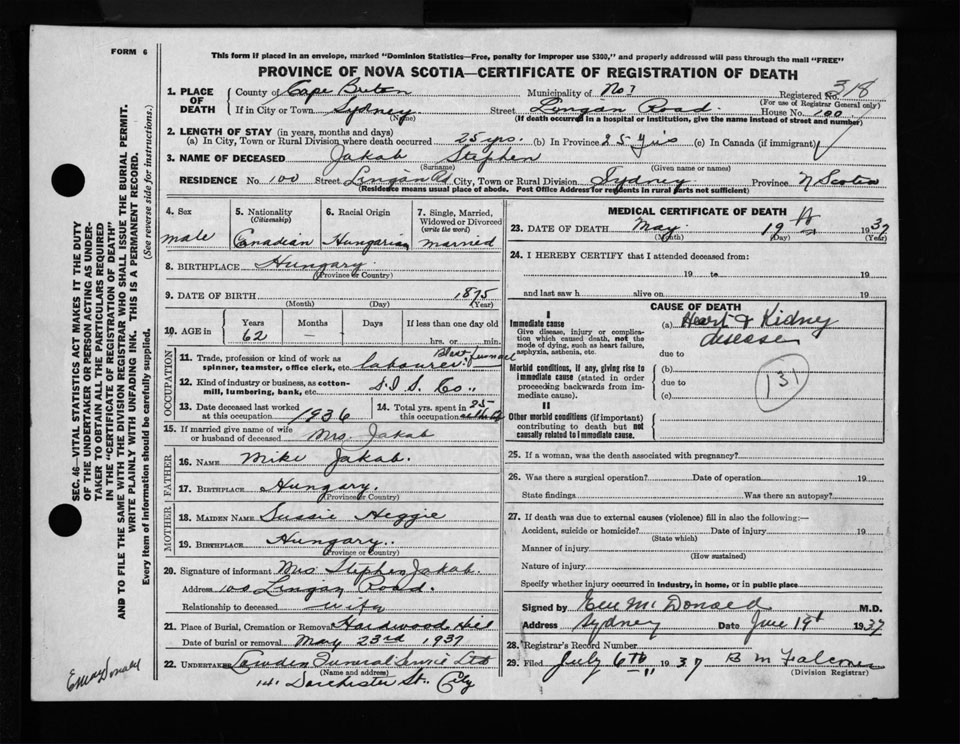 FORM 6
This form if placed in an envelope, marked "Dominion Statistics—Free, penalty for improper use $300," and properly addressed will pass through the mail "FREE"
PROVINCE OF NOVA SCOTIA—CERTIFICATE OF REGISTRATION OF DEATH
1. PLACE OF DEATH
County of Cape Breton Municipality of No 1 Registered No. 318
(For use of Registrar General only)
If in City or Town Sydney Street Lingan Road House No. 100
(Name) (If death occurred in a hospital or institution, give the name instead of street and number)
2. LENGTH OF STAY (in years, months and days)
(a) In City, Town or Rural Division where death occurred 25 yrs. (b) In Province 25 yrs (c) In Canada (if immigrant)
3. NAME OF DECEASED Jakab Stephen
(Surname) (Given name or names)
RESIDENCE No. 100 Street Lingan Rd City, Town or Rural Division Sydney Province N Scotia
(Residence means usual place of abode. Post Office Address for residents in rural parts not sufficient)
4. Sex
male
5. Nationality
(Citizenship)
Canadian
6. Racial Origin
Hungarian
7. Single, Married, Widowed or Divorced
(write the word)
married
8. BIRTHPLACE Hungary
(Province or Country)
9. DATE OF BIRTH 1875
(Month) (Day) (Year)
10. AGE in
Years Months Days If less than one day old
62 — hrs. or min.
OCCUPATION
11. Trade, profession or kind of work as spinner, teamster, office clerk, etc. labourer
12. Kind of industry or business, as cotton-mill, lumbering, bank, etc. D.I.S. Co.
13. Date deceased last worked at this occupation 1936
14. Total yrs. spent in this occupation 25
15. If married give name of wife or husband of deceased Mrs. Jakab
FATHER
16. NAME Mike Jakab.
17. BIRTHPLACE Hungary.
(Province or Country)
MOTHER
18. MAIDEN NAME Sussie Heggie
19. BIRTHPLACE Hungary.
(Province or Country)
20. Signature of informant Mrs Stephen Jakab.
Address 100 Lingan Road.
Relationship to deceased wife
21. Place of Burial, Cremation or Removal Hardwood Hill
Date of burial or removal May 23rd 1937
22. UNDERTAKER Cawden Funeral Service Ltd
(Name and address)
141 Dorchester St., City
MEDICAL CERTIFICATE OF DEATH
23. DATE OF DEATH May 19th 1937
(Month) (Day) (Year)
24. I HEREBY CERTIFY that I attended deceased from:
19 to 19
and last saw h alive on 19
CAUSE OF DEATH
I
Immediate cause
Give disease, injury or complication which caused death, not the mode of dying, such as heart failure, asphyxia, asthenia, etc.
(a) Heart & Kidney
disease
due to
Morbid conditions, if any, giving rise to immediate cause (stated in order proceeding backwards from immediate cause).
(b)
due to
(c)
131
II
Other morbid conditions (if important) contributing to death but not causally related to immediate cause.
25. If a woman, was the death associated with pregnancy?
26. Was there a surgical operation? Date of operation 19
State findings Was there an autopsy?
27. If death was due to external causes (violence) fill in also the following:—
Accident, suicide or homicide? Date of injury 19
(State which)
Manner of injury
(How sustained)
Nature of injury
Specify whether injury occurred in industry, in home, or in public place
Signed by McDonald M.D.
Address Sydney Date June 19th 1937
28. Registrar's Record Number
29. Filed July 6th 1937 B M Falconer
(Division Registrar)
SEC. 46—VITAL STATISTICS ACT MAKES IT THE DUTY
OF THE UNDERTAKER OR PERSON ACTING AS UNDER-
TAKER TO OBTAIN ALL THE PARTICULARS REQUIRED
IN THE "CERTIFICATE OF REGISTRATION OF DEATH"
AND TO FILE THE SAME WITH THE DIVISION REGISTRAR WHO SHALL ISSUE THE BURIAL PERMIT.
WRITE PLAINLY WITH UNFADING INK. THIS IS A PERMANENT RECORD.
Every item of information should be carefully supplied. (See reverse side for instructions.)